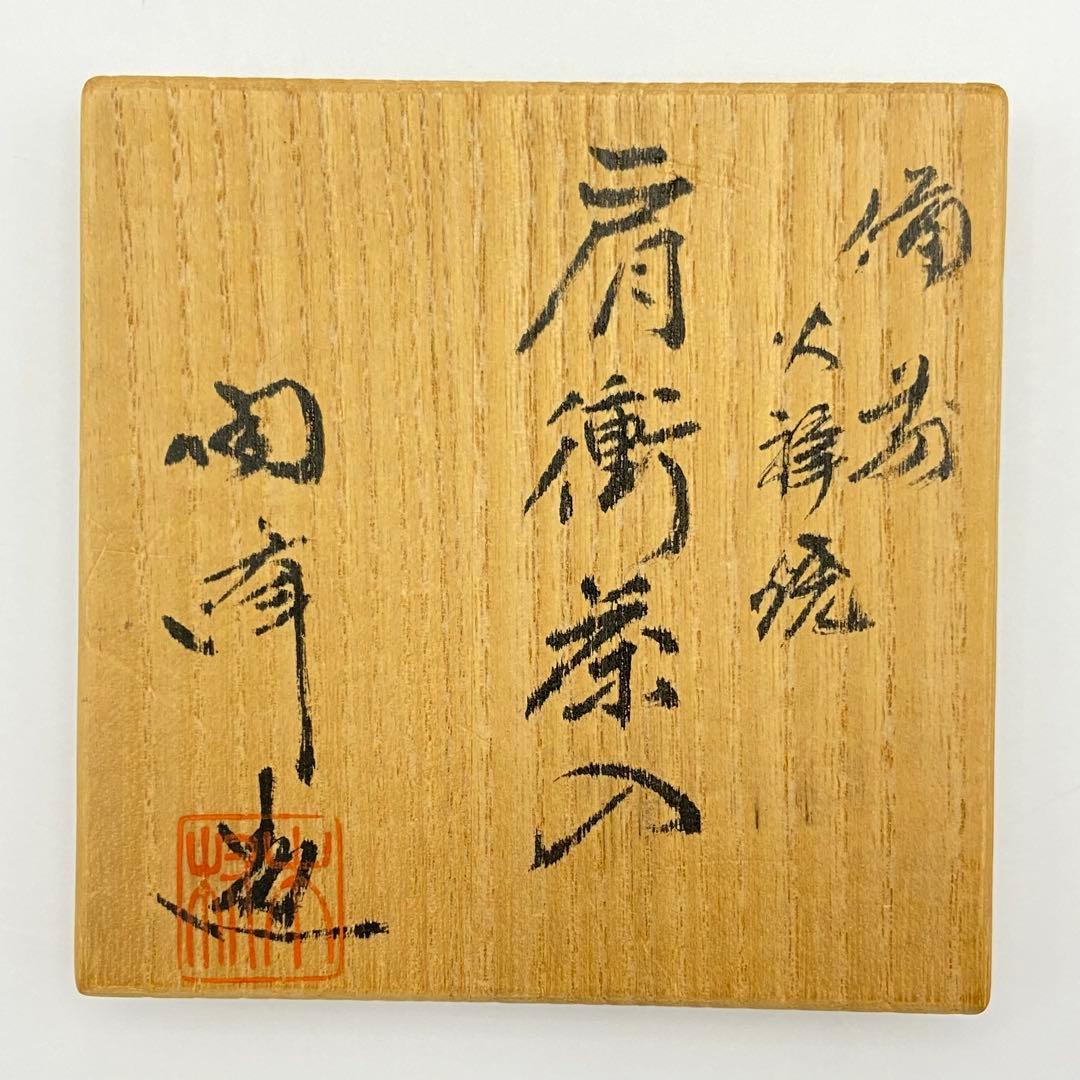 備前
火襷焼
肩衝茶入
陶峰造